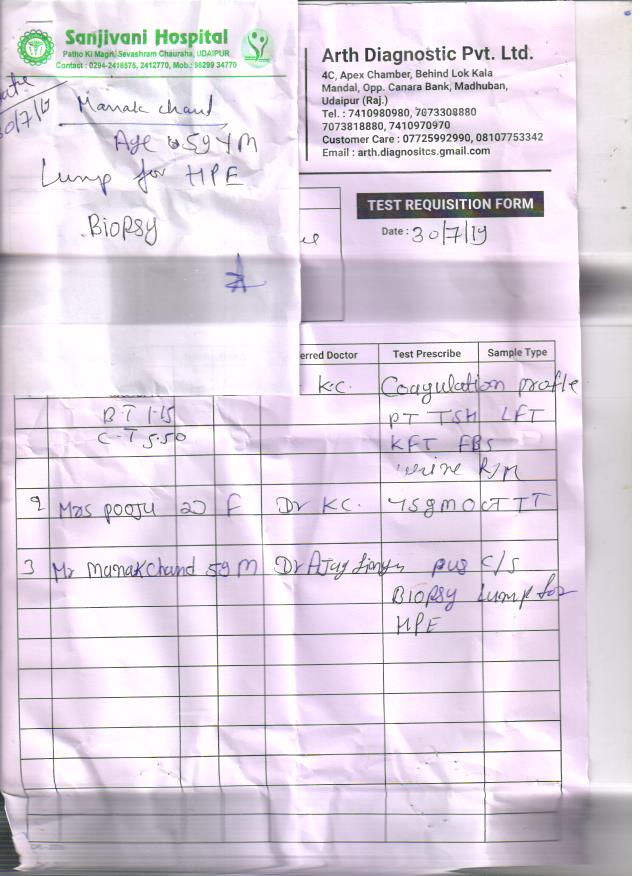 Sanjivani Hospital
Patho Ki Magri, Sevashram Chauraha, UDAIPUR
Contact : 0294-2418575, 2412770, Mob.: 98299 34770
30/7/19
Manak chand
Age 59 Y M
Lump for HPE
Biopsy
Arth Diagnostic Pvt. Ltd.
4C, Apex Chamber, Behind Lok Kala
Mandal, Opp. Canara Bank, Madhuban,
Udaipur (Raj.)
Tel. : 7410980980, 7073308880
7073818880, 7410970970
Customer Care : 07725992990, 08107753342
Email : arth.diagnositcs.gmail.com
TEST REQUISITION FORM
Date : 30/7/19
erred Doctor Test Prescribe Sample Type
K.C. Coagulation profile
BT 1.15 PT TSH LFT
C.T 5.50 KFT FBS
urine R/M
2 Mrs pooja 20 F Dr KC.
3 Mr Manakchand 59 M Dr Ajay pus C/S
Biopsy Lump for
HPE